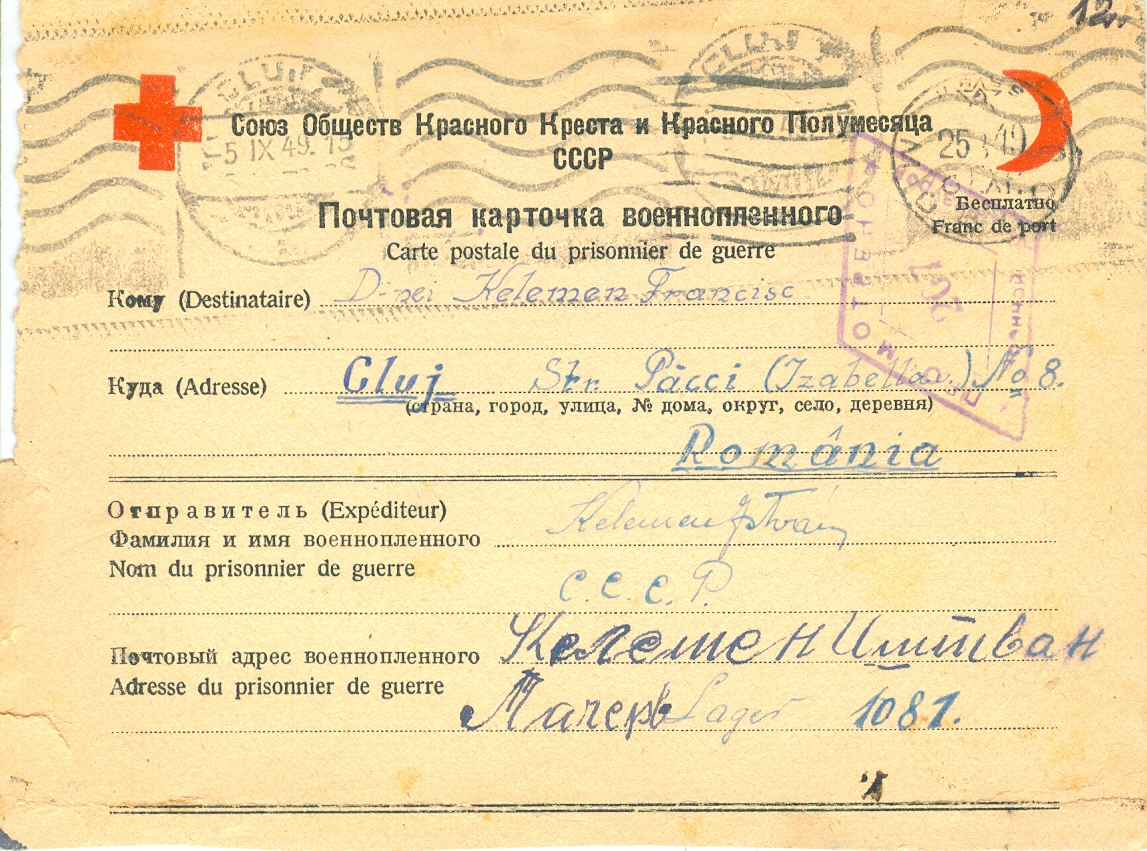 12
CLUJ
CLUJ
5 IX 49. 15
25 49
Союз Обществ Красного Креста и Красного Полумесяца
СССР
Почтовая карточка военнопленного
Бесплатно
Franc de port
Carte postale du prisonnier de guerre
Кому (Destinataire) D-nei Kelemen Francisc
Куда (Adresse) Cluj Str. Păcci (Izabella) No 8.
(страна, город, улица, № дома, округ, село, деревня)
România
Отправитель (Expéditeur)
Фамилия и имя военнопленного Kelemen István
Nom du prisonnier de guerre
С.С.С.Р.
Почтовый адрес военнопленного Келемен Иштван
Adresse du prisonnier de guerre
Лагерь Lager 1081.